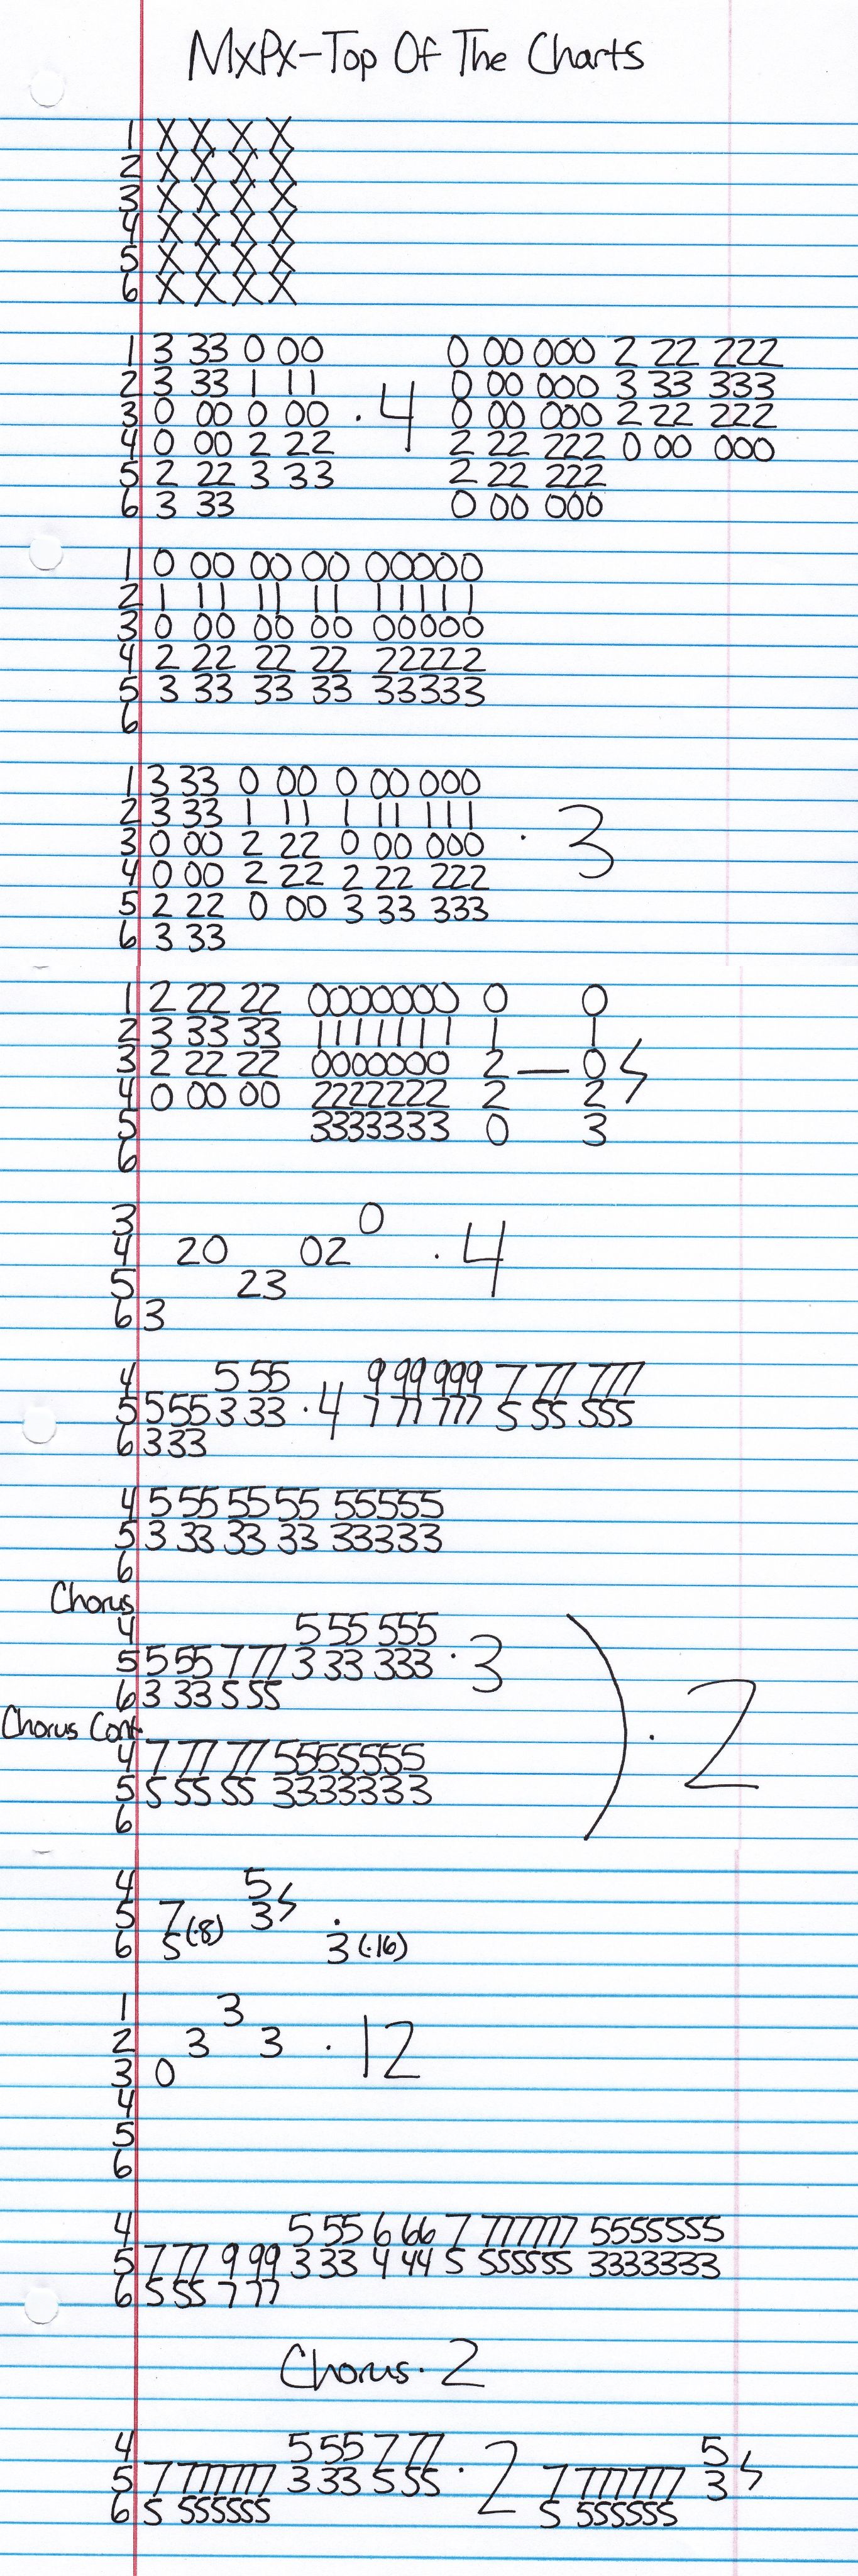 MxPx-Top Of The Charts
1 X X X X
2 X X X X
3 X X X X
4 X X X X
5 X X X X
6 X X X X
1 3 33 0 00 0 00 000 2 22 222
2 3 33 1 11 0 00 000 3 33 333
3 0 00 0 00 · 4 0 00 000 2 22 222
4 0 00 2 22 2 22 222 0 00 000
5 2 22 3 33 2 22 222
6 3 33 0 00 000
1 0 00 00 00 00000
2 1 11 11 11 11111
3 0 00 00 00 00000
4 2 22 22 22 22222
5 3 33 33 33 33333
6
1 3 33 0 00 0 00 000
2 3 33 1 11 1 11 111
3 0 00 2 22 0 00 000 · 3
4 0 00 2 22 2 22 222
5 2 22 0 00 3 33 333
6 3 33
1 2 22 22 0000000 0 0
2 3 33 33 1111111 1 1
3 2 22 22 0000000 2 — 0
4 0 00 00 2222222 2 2
5 3333333 0 3
6
3 0
4 20 02 · 4
5 23
6 3
4 5 55 9 99 999 7 77 777
5 5 55 3 33 · 4 7 77 777 5 55 555
6 333
4 5 55 55 55 55555
5 3 33 33 33 33333
6
Chorus
4 5 55 555
5 5 55 7 77 3 33 333 · 3
6 3 33 5 55
Chorus Cont
4 7 77 77 5555555
5 5 55 55 3333333
6
) · 2
4 5
5 7 3 ·
6 5 (·8) 3 (·16)
1 3
2 3 3 · 12
3 0
4
5
6
4 5 55 6 66 7 777777 5555555
5 7 77 9 99 3 33 4 44 5 555555 3333333
6 5 55 7 77
Chorus · 2
4 5 55 7 77 5
5 7 777777 3 33 5 55 · 2 7 777777 3
6 5 555555 5 555555